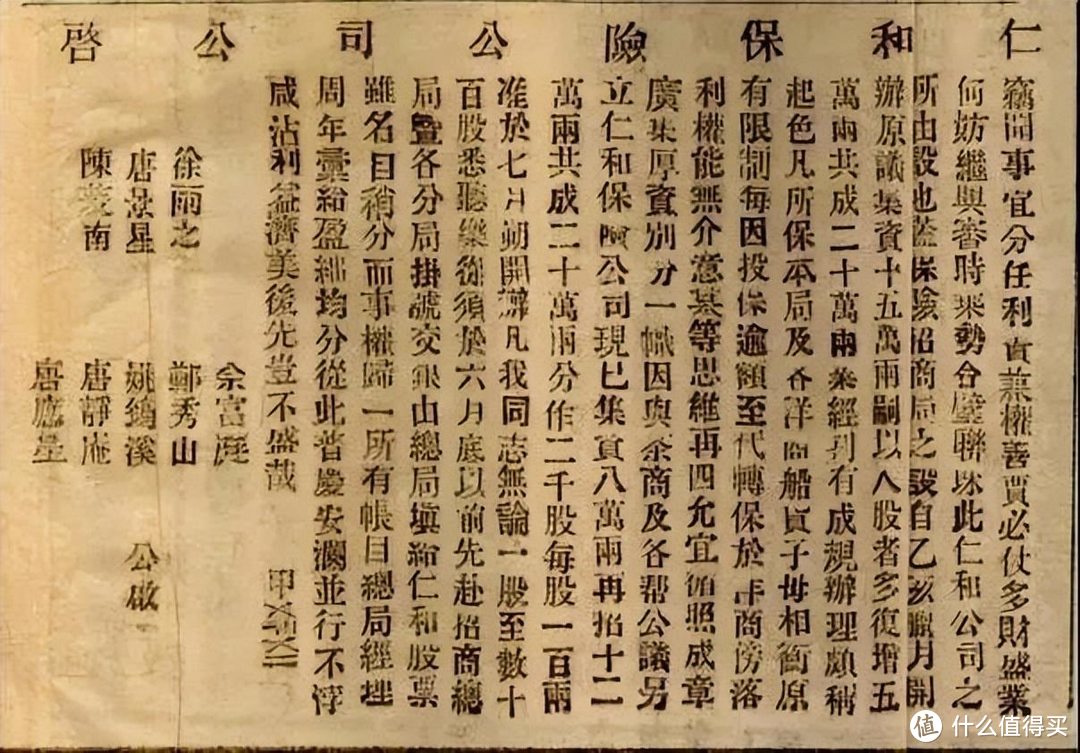 仁和保險公司公啓
竊聞事宜分任利貴兼權善賈必仗多財盛業
何妨繼與審時乘勢合璧聯珠此仁和公司之
所由設也蓋保險招商局之設自乙亥臘月開
辦原議集資十五萬兩嗣以入股者多復增五
萬兩共成二十萬兩業經刋有成規辦理頗稱
起色凡所保本局及各洋商船貨子母相衡原
有限制每因投保逾額至代轉保於洋商傍落
利權能無介意某等思維再四允宜循照成章
廣集厚資別分一幟因與茶商及各帮公議另
立仁和保險公司現已集貲八萬兩再招十二
萬兩共成二十萬兩分作二千股每股一百兩
准於七月朔開辦凡我同志無論一股至數十
百股悉聽樂從須於六月底以前先赴招商總
局暨各分局掛號交銀由總局填給仁和股票
雖名目稍分而事權歸一所有帳目總局經理
周年彙給盈絀均分從此普慶安瀾並行不悖
咸沾利益濟美後先豈不盛哉
徐雨之
唐景星
陳菱南
佘富庭
鄭秀山
姚鶴溪
唐靜庵
唐應星
公啟
值 什么值得买